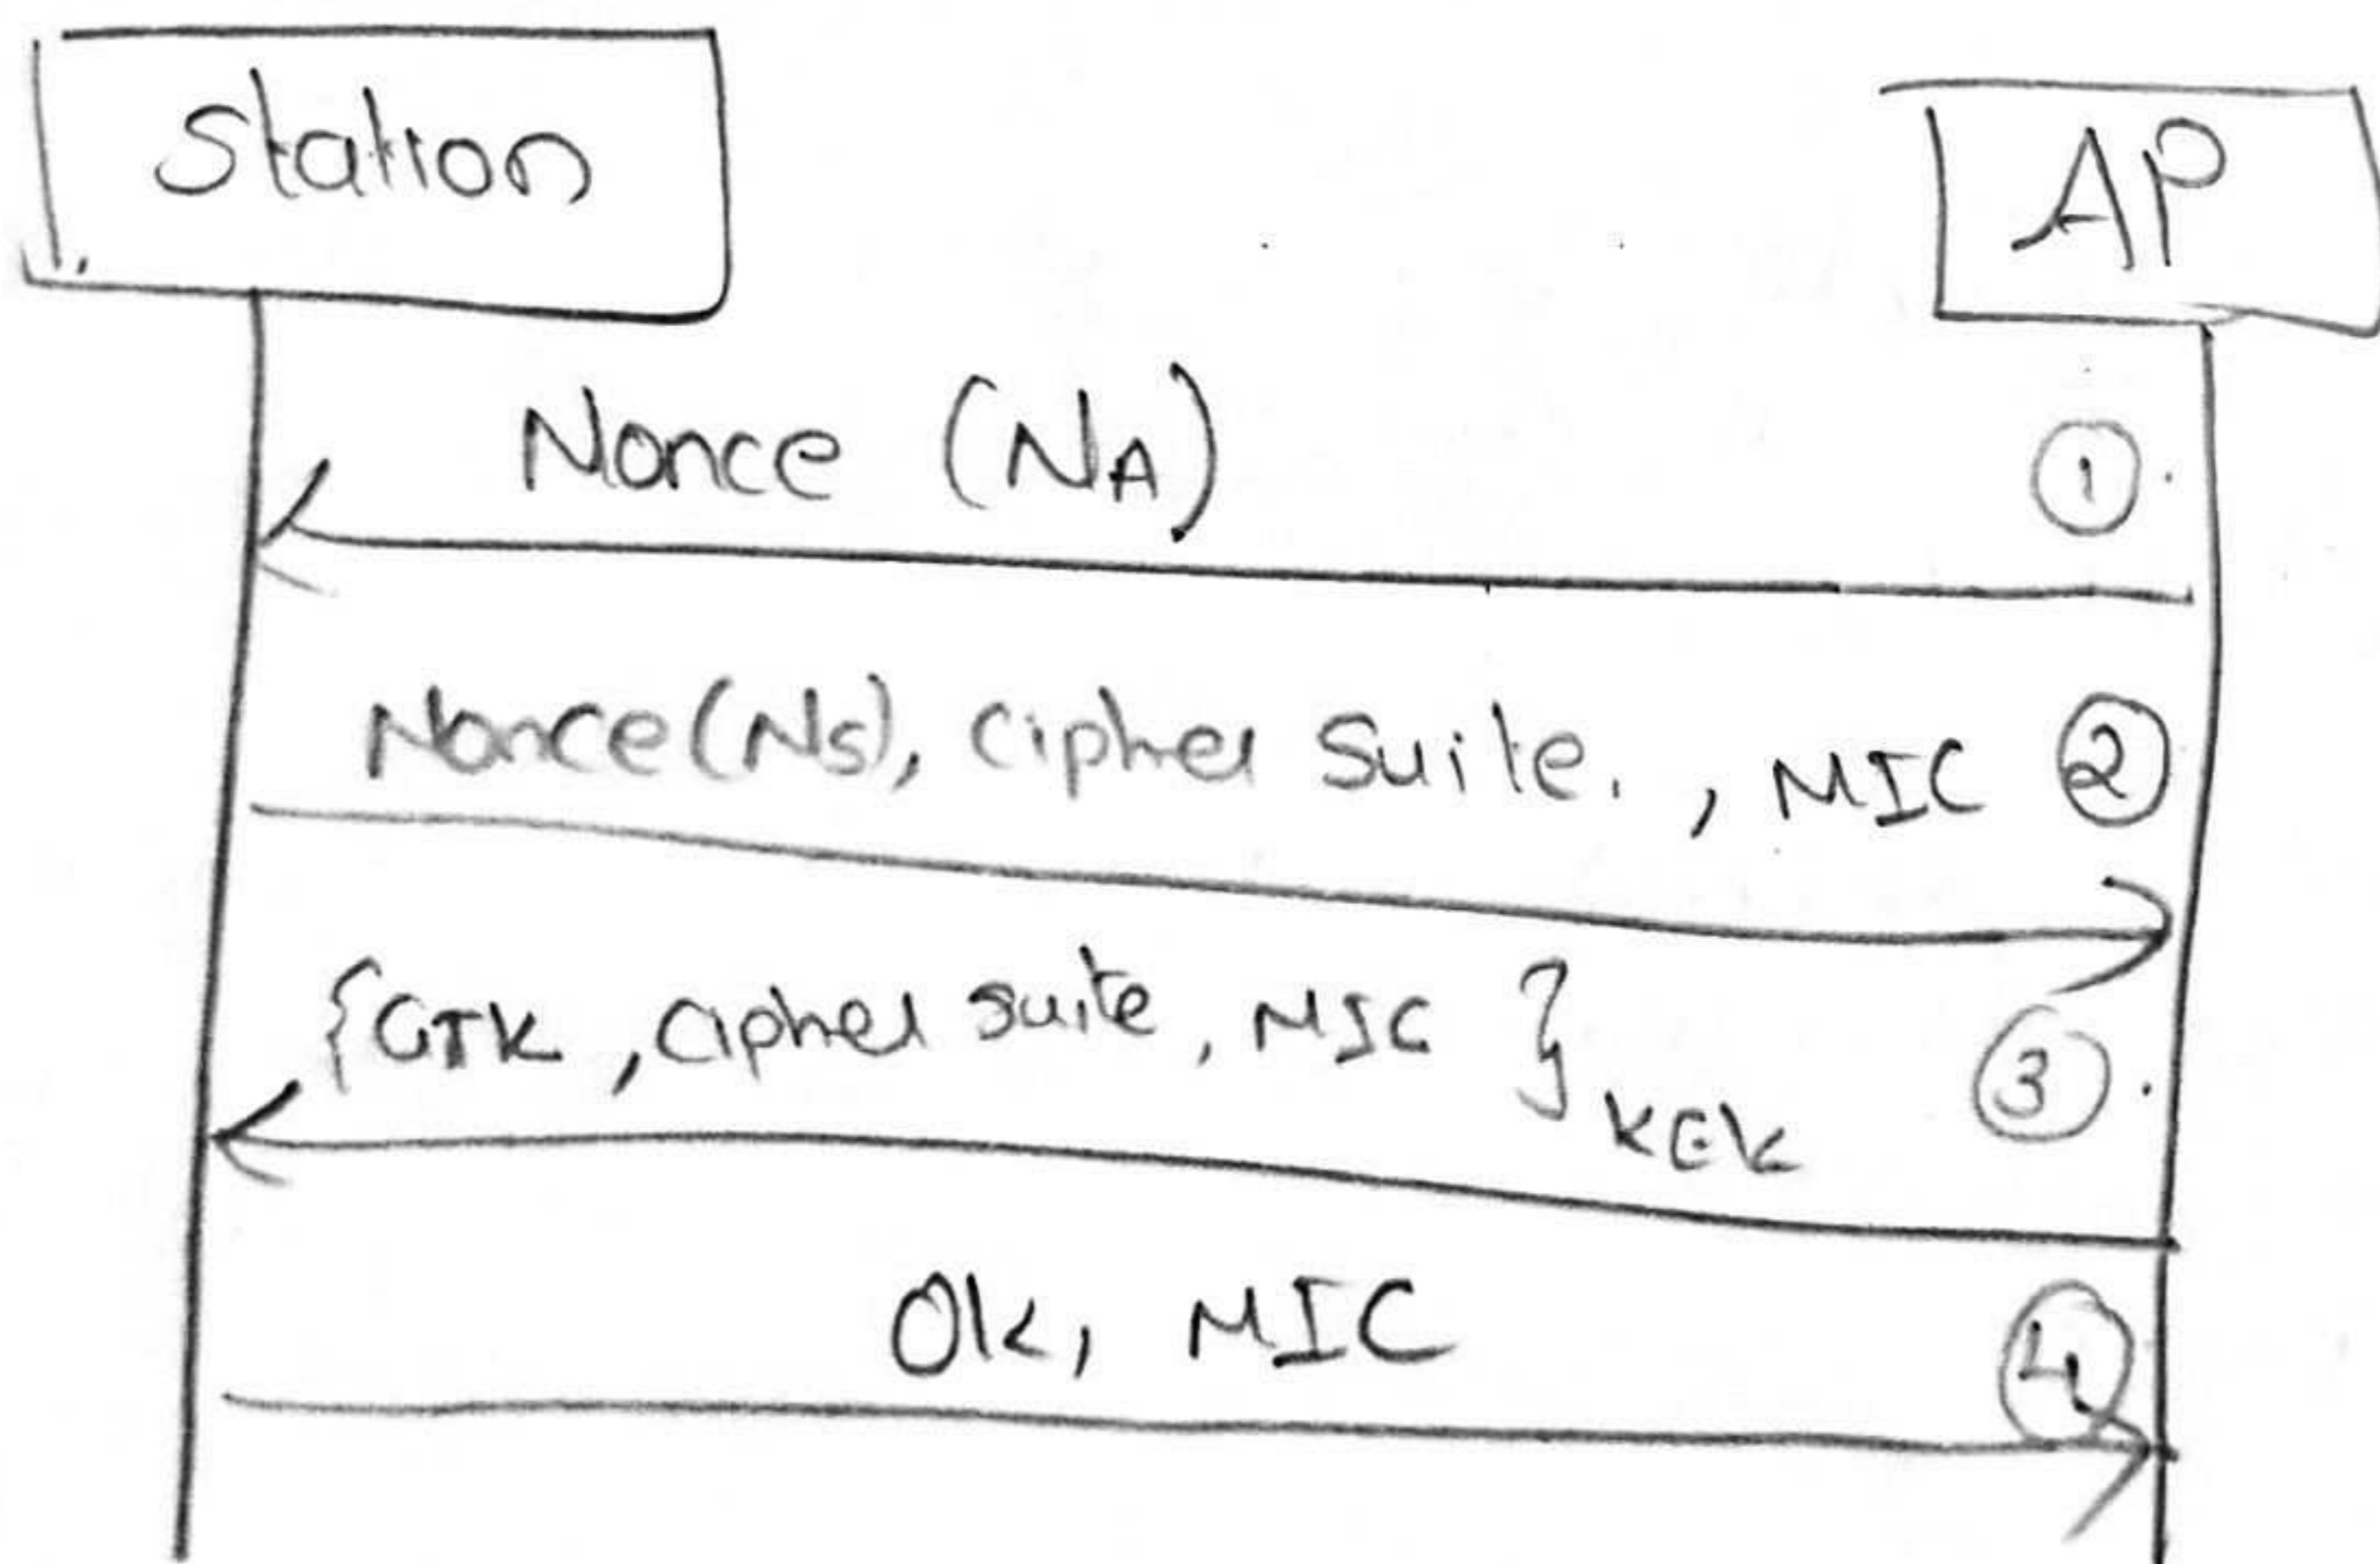 Station
AP
Nonce (NA)
1
Nonce (Ns), Cipher Suite. , MIC 2
{GTK , Cipher suite, MIC } KEK
3
Ok, MIC
4